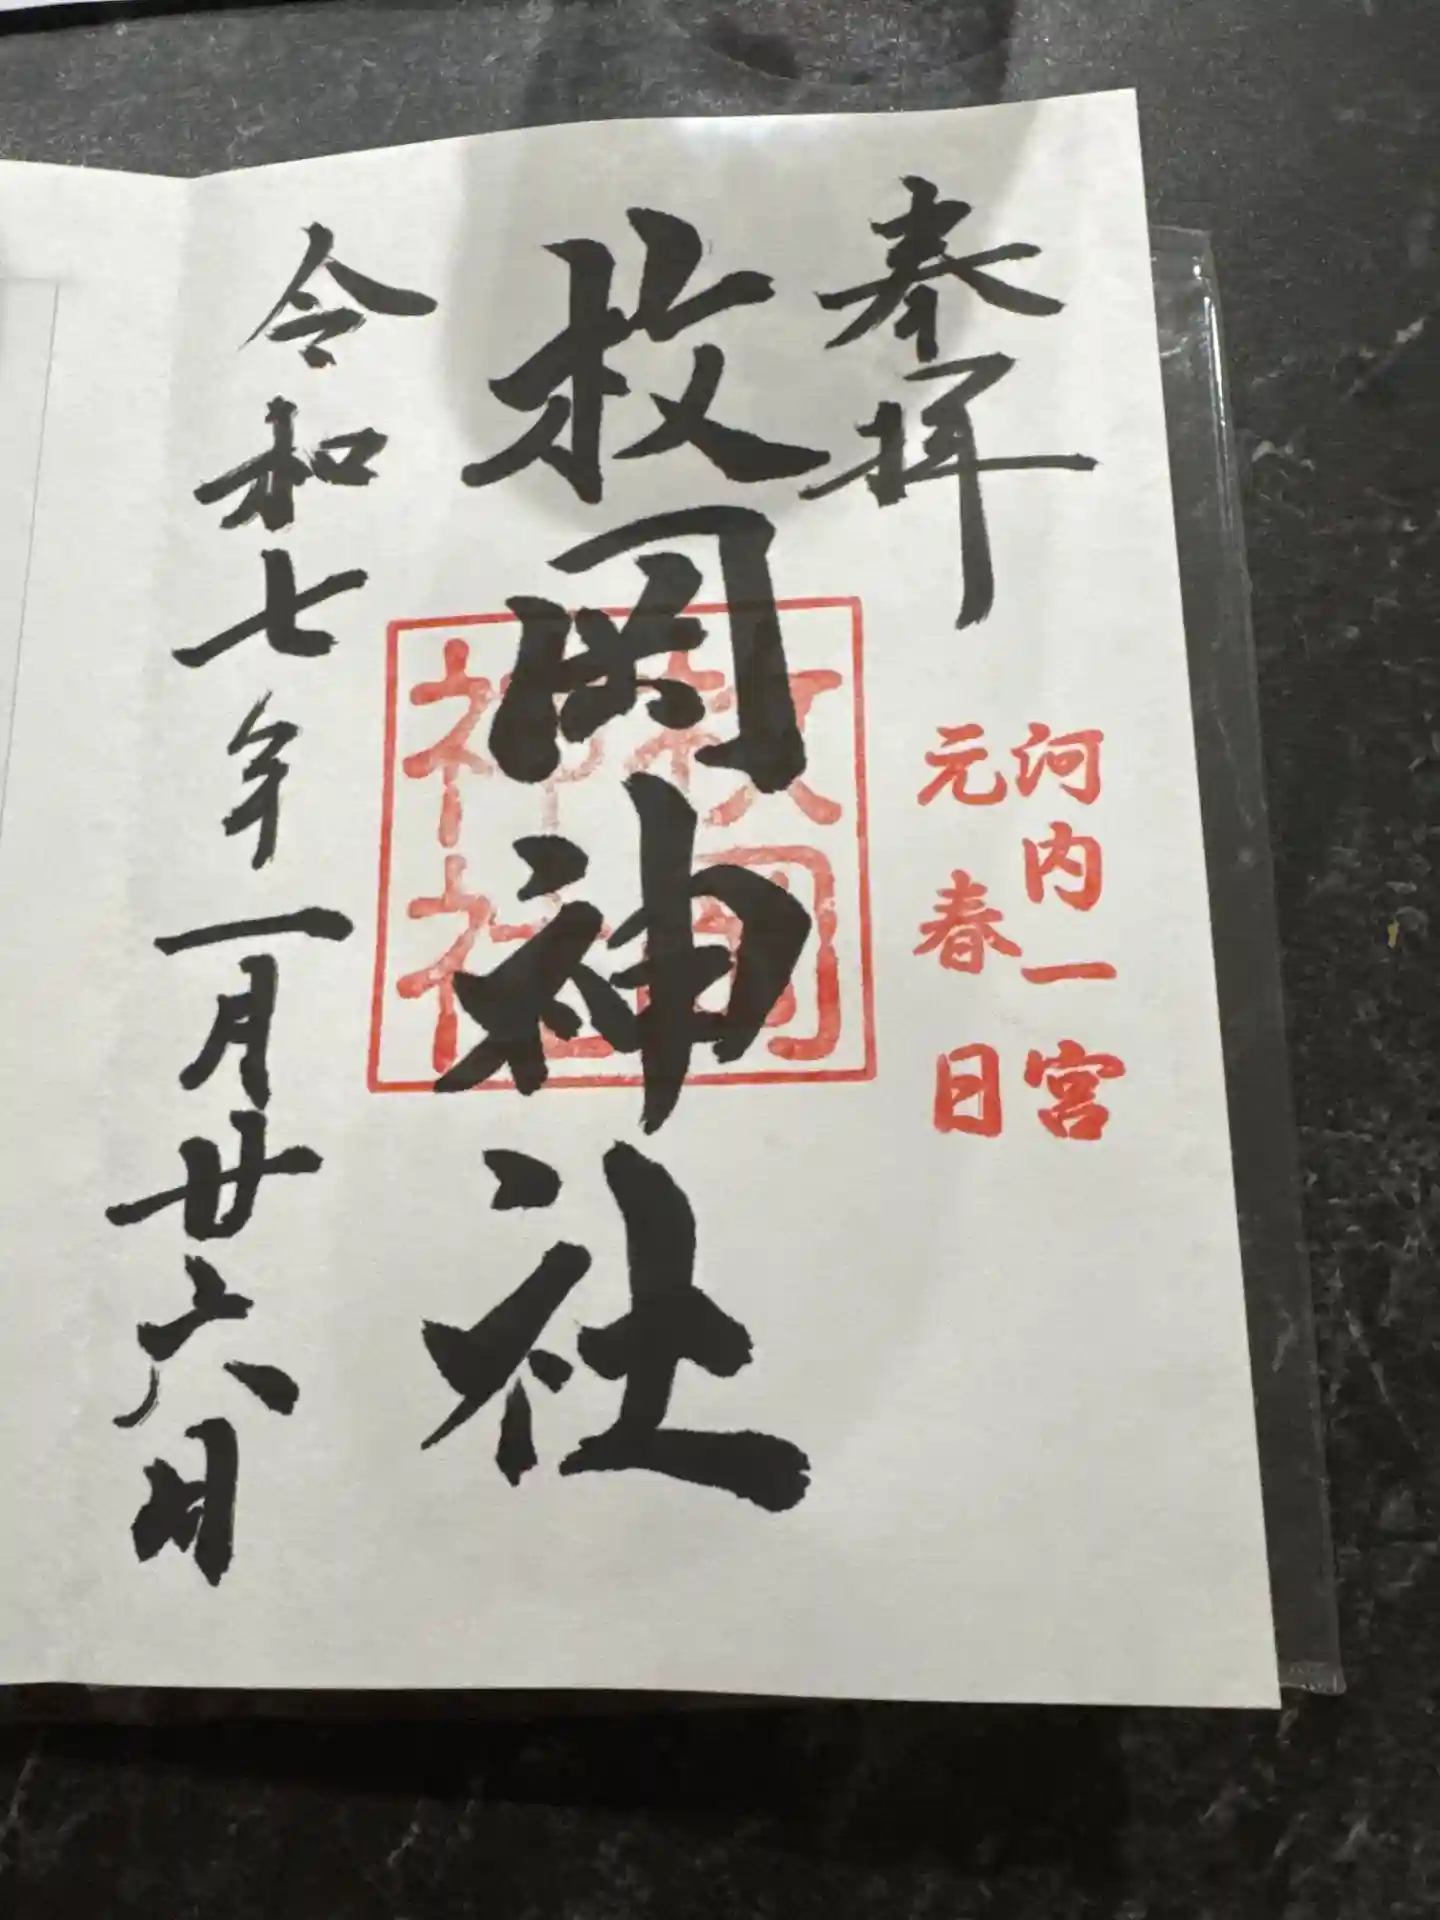 奉拝
河内一宮
元春日
枚岡神社
枚岡
神社
令和七年一月廿六日